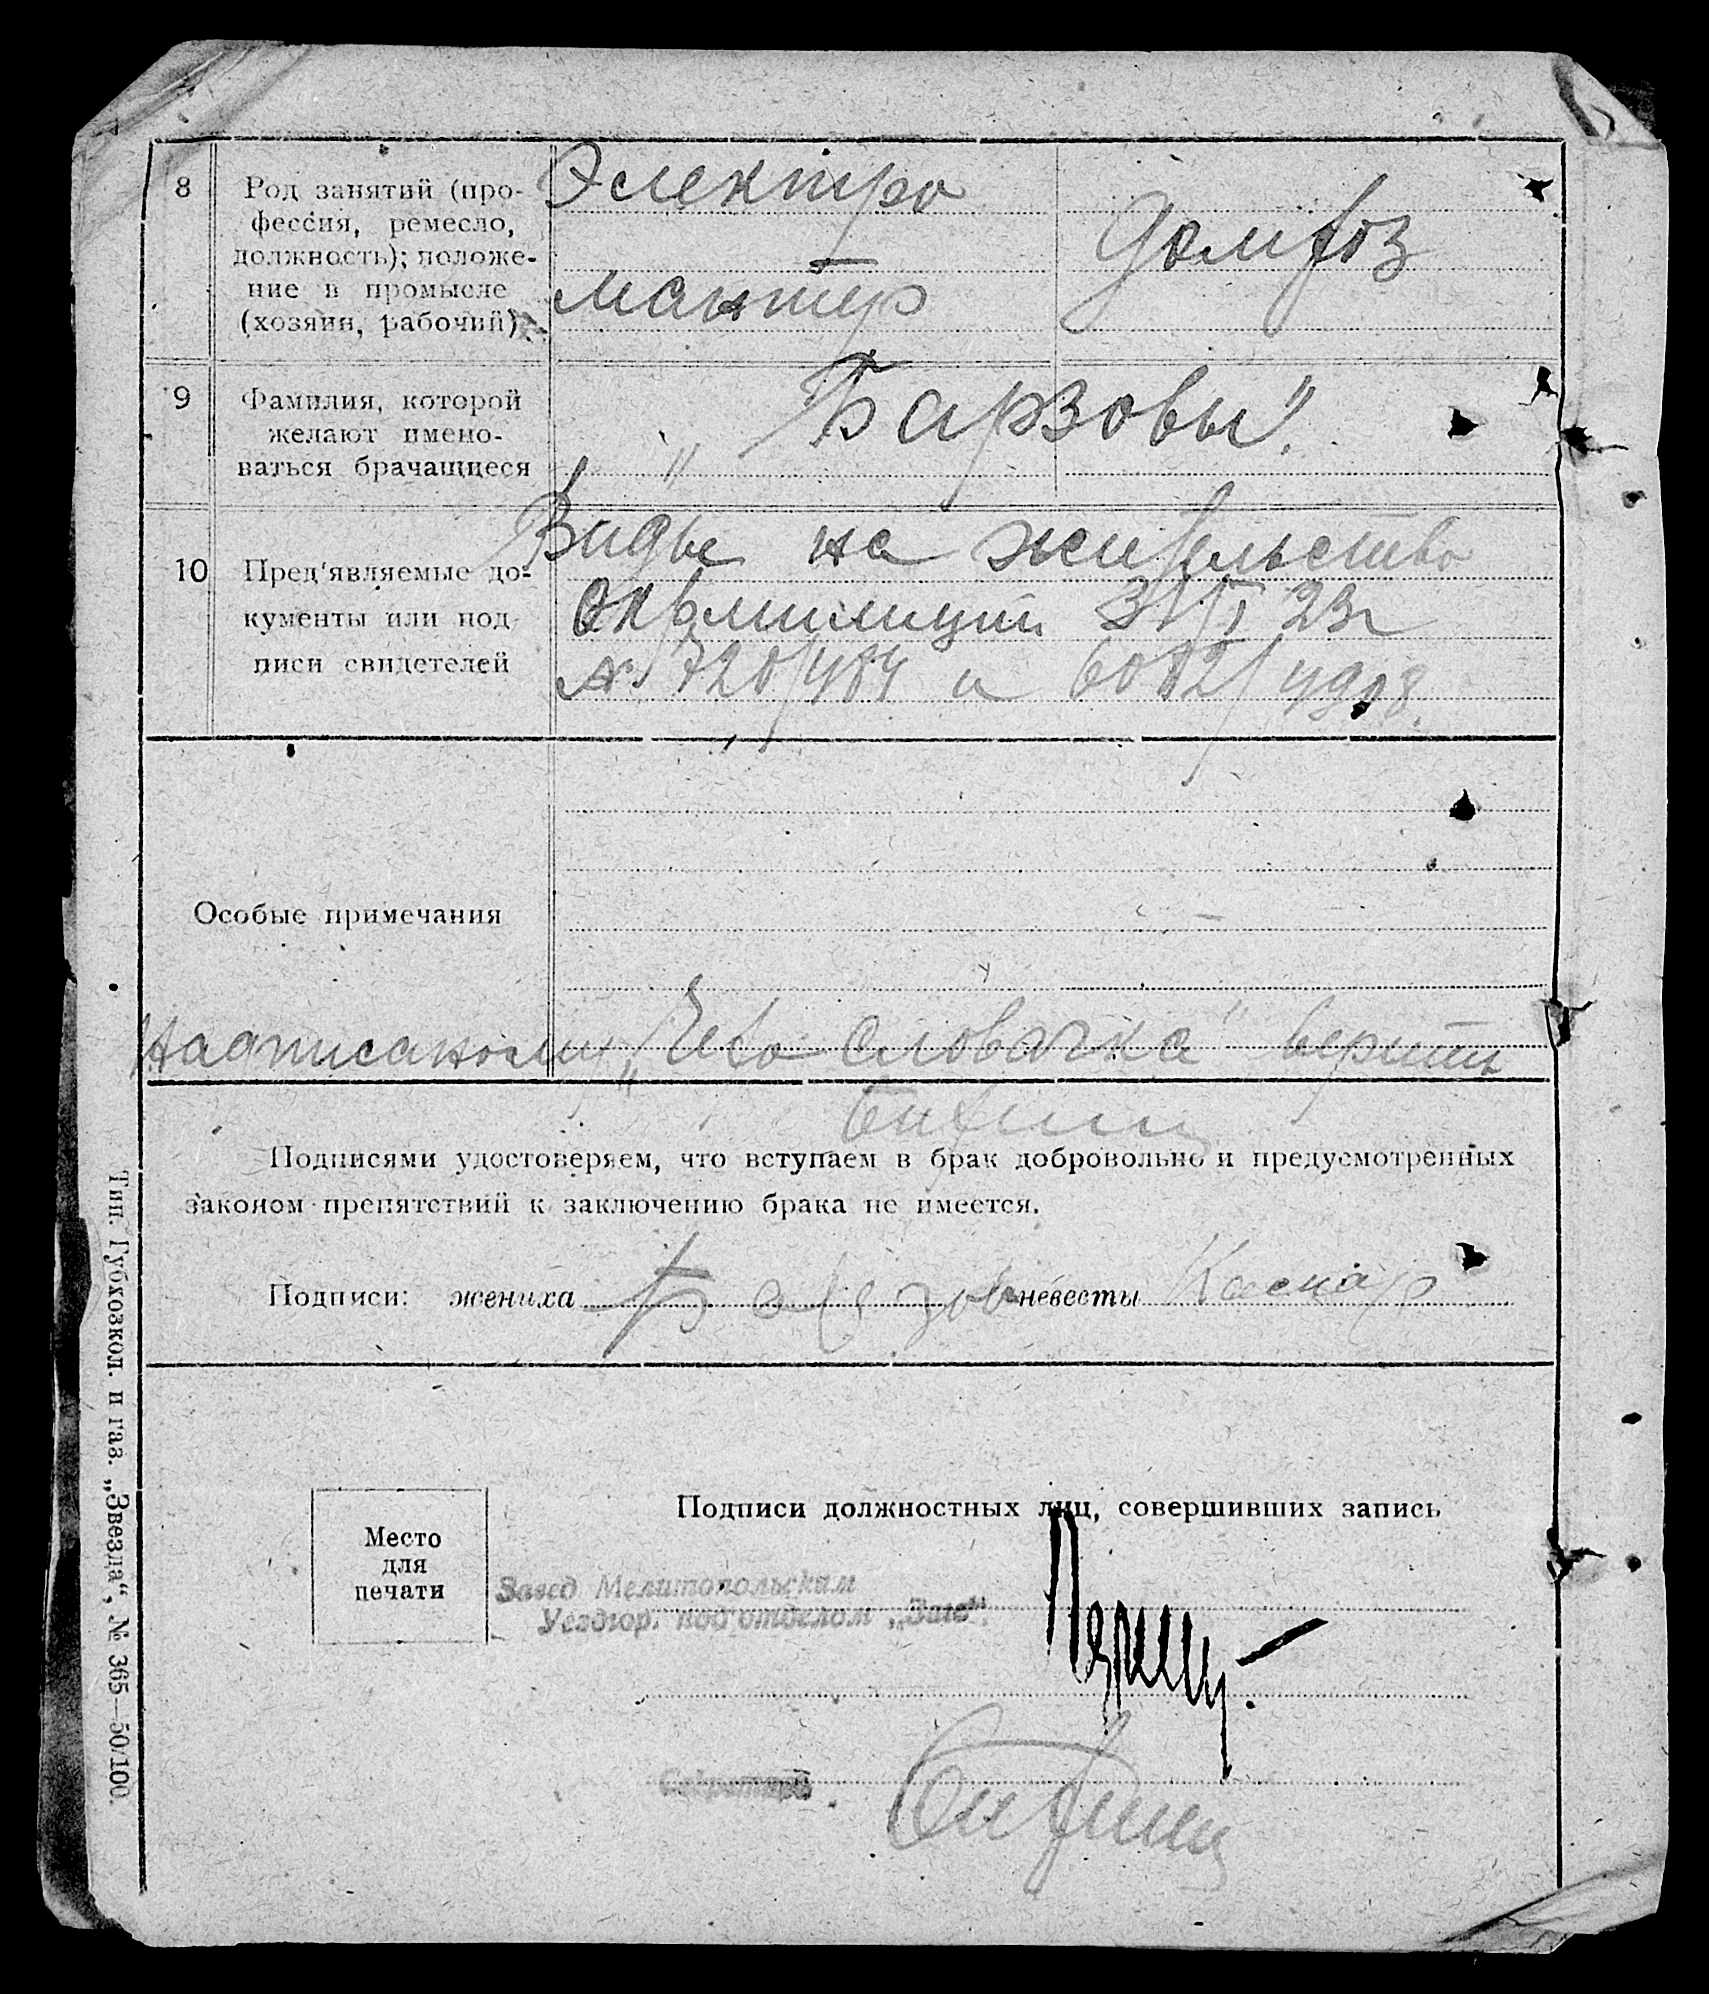 8 Род занятий (про-
фессия, ремесло,
должность); положе-
ние в промысле
(хозяин, рабочий)
Электро
мантер
домхоз
9 Фамилия, которой
желают имено-
ваться брачащиеся
„Барзовы"
10 Пред'являемые до-
кументы или под-
писи свидетелей
Виды на жительство
Окрмилиции 31/I 23г
№ 720/484 и 6082/
Особые примечания
Надписаному „Чехо словачка" верить
Подписями удостоверяем, что вступаем в брак добровольно и предусмотренных
законом препятствий к заключению брака не имеется.
Подписи: жениха Барзов невесты Каспар
Подписи должностных лиц, совершивших запись
Место
для
печати
Завед Мелитопольским
Уездгор. подотделом „Загс".
Секретарь
Тип. Губхозкол. и газ. „Звезда", № 365—50/100.